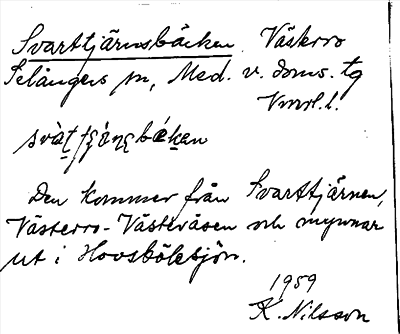 Svarttjärnsbäcken Västerro
Selångers sn, Med. v. doms. tg
Vmrl. l.
Den kommer från Svarttjärnen,
Västerro-Västeråsen och mynnar
ut i Hovsbölesjön.
1959
K. Nilsson